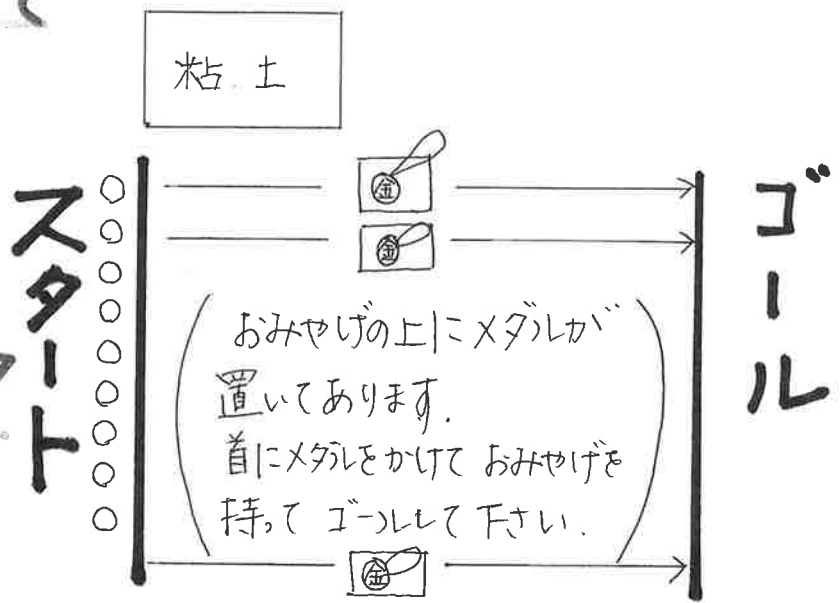 粘土
スタート
ゴール
金
金
おみやげの上にメダルが
置いてあります.
首にメダルをかけて おみやげを
持って ゴールして下さい.
金